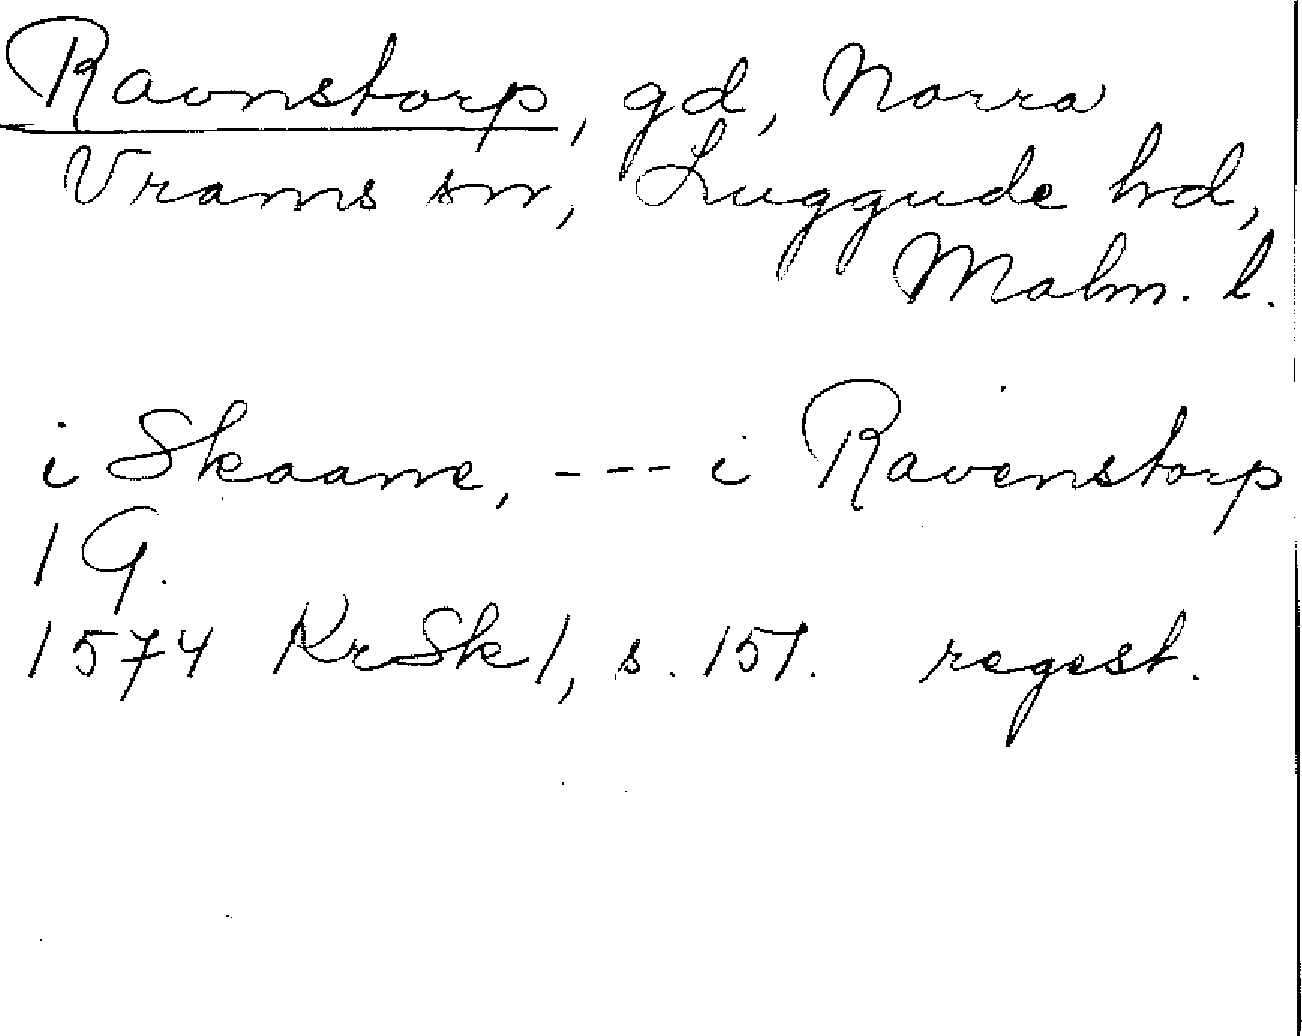 Ravnstorp, gd, Norra
Vrams sn, Luggude hd,
Malm. l.
i Skaane, --- i Ravenstorp
1 G.
1574 KrSk 1, s. 151. regest.